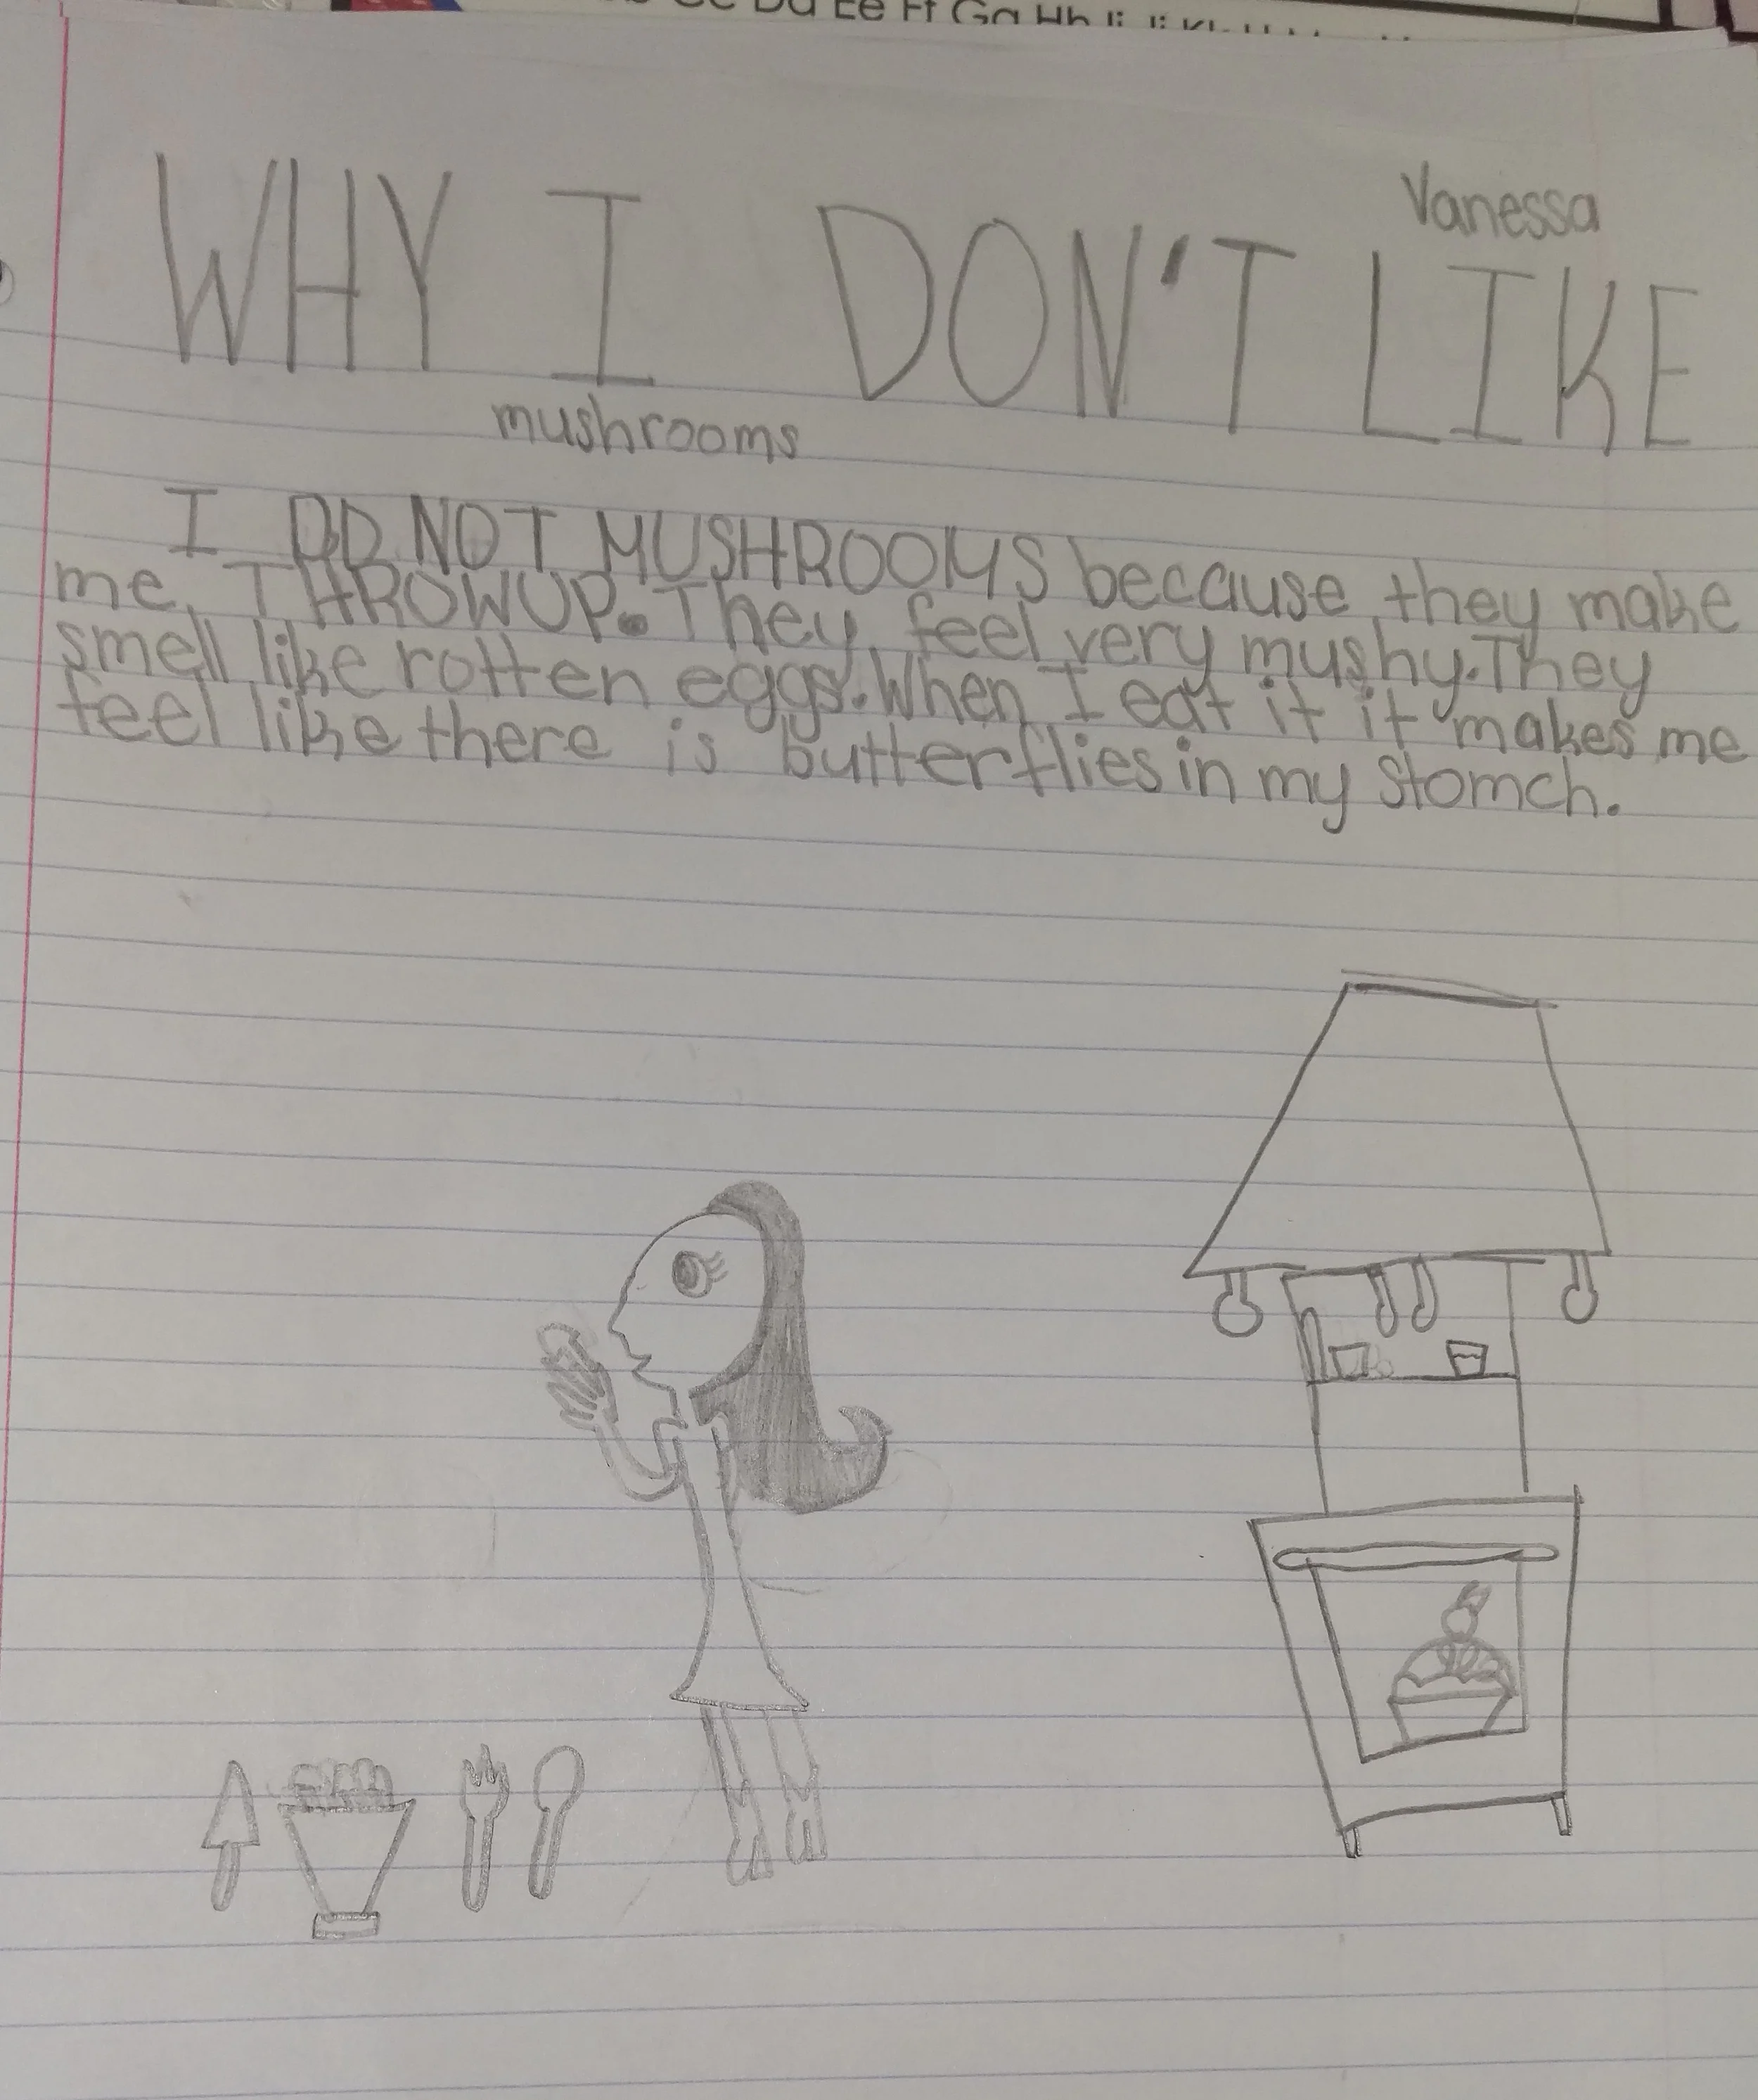 Cc Dd Ee Ff Gg Hh Ii Jj Kk
Vanessa
WHY I DON'T LIKE
mushrooms
I DO NOT MUSHROOMS because they make
me THROWUP. They feel very mushy. They
smell like rotten eggs. When I eat it it makes me
feel like there is butterflies in my stomch.